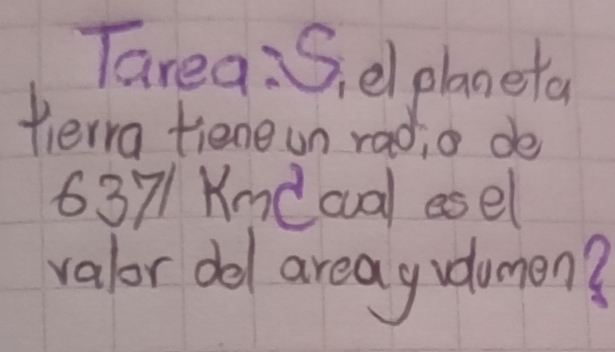 Tarea: Si el planeta
tierra tiene un radio de
6371 Km ¿ cual es el
valor del area y volumen?